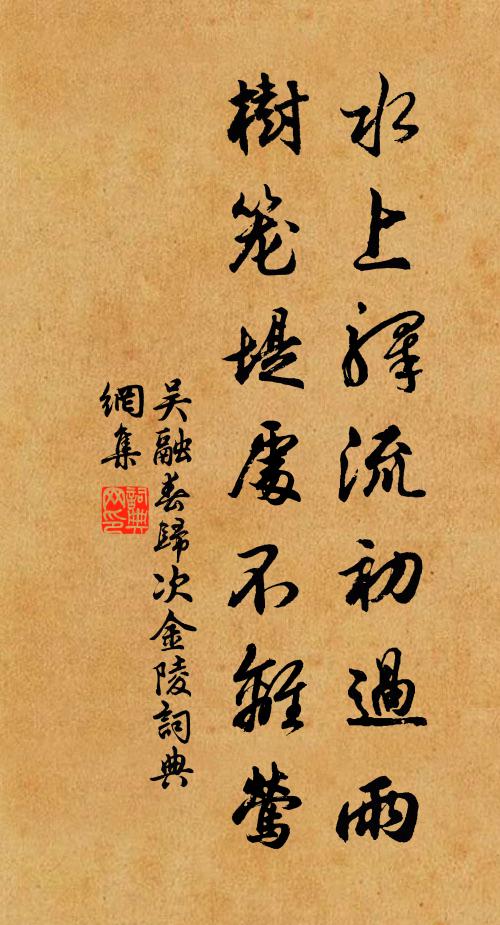 水上驛流初過雨
樹笼堤處不離鶯
吴融春歸次金陵詞典
網集
詞典
网印